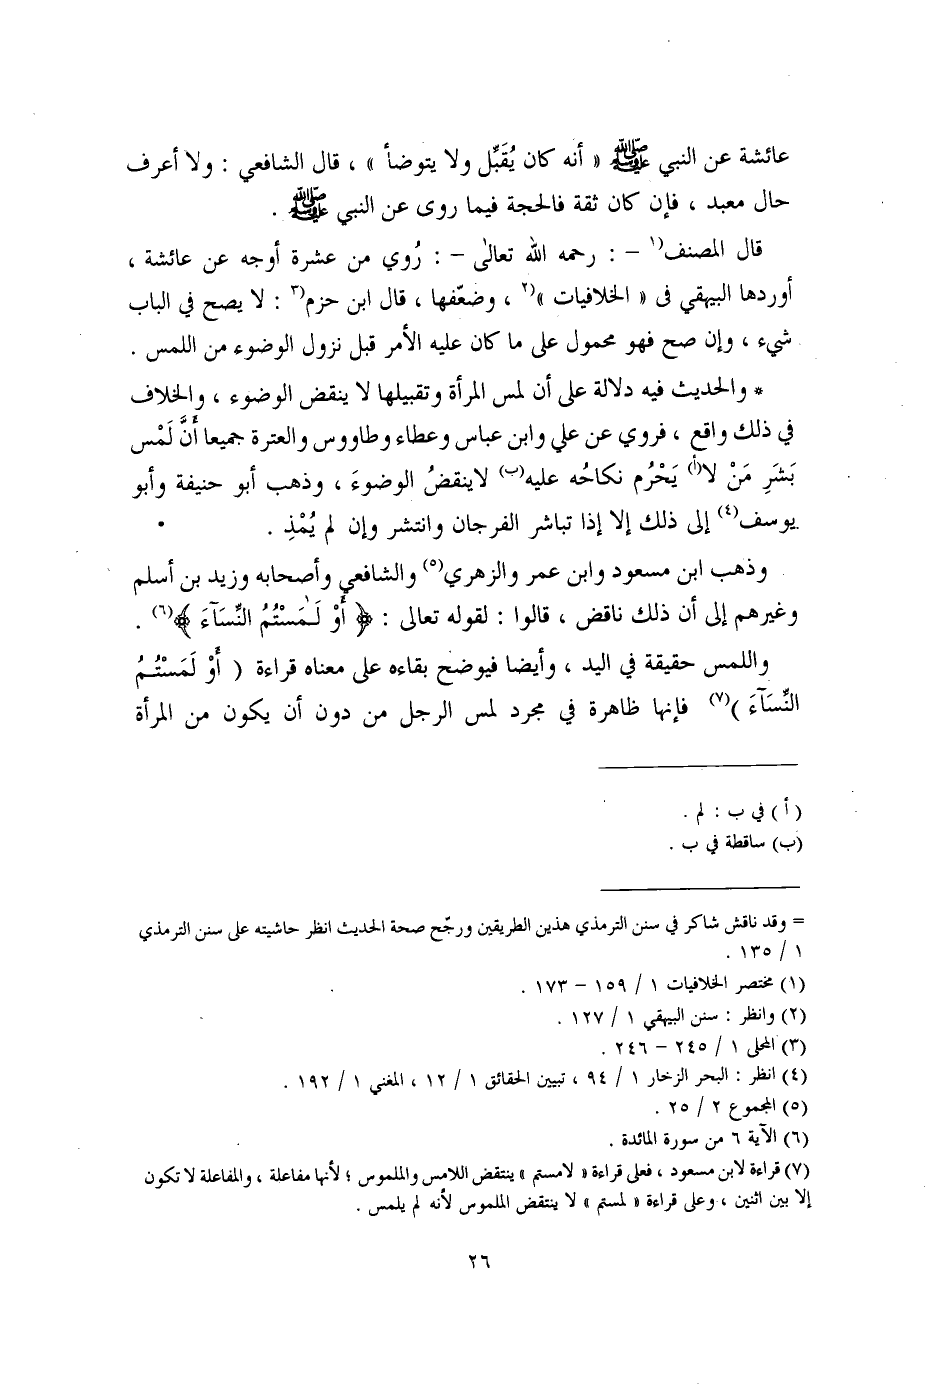 عائشة عن النبي ﷺ « أنه كان يُقَبِّل ولا يتوضأ » ، قال الشافعي : ولا أعرف
حال معبد ، فإن كان ثقة فالحجة فيما روى عن النبي ﷺ .
قال المصنف(١ – : رحمه الله تعالى – : رُوي من عشرة أوجه عن عائشة ،
أوردها البيهقي فى « الخلافيات »(٢ ، وضعّفها ، قال ابن حزم(٣ : لا يصح في الباب
شيء ، وإن صح فهو محمول على ما كان عليه الأمر قبل نزول الوضوء من اللمس .
* والحديث فيه دلالة على أن لمس المرأة وتقبيلها لا ينقض الوضوء ، والخلاف
في ذلك واقع ، فروي عن علي وابن عباس وعطاء وطاووس والعترة جميعا أَنَّ لَمْس
بَشَرِ مَنْ لا(أ) يَحْرُم نكاحُه عليه(ب) لاينقضُ الوضوءَ ، وذهب أبو حنيفة وأبو
يوسف(٤) إلى ذلك إلا إذا تباشر الفرجان وانتشر وإن لم يُمْذِ .
وذهب ابن مسعود وابن عمر والزهري(٥) والشافعي وأصحابه وزيد بن أسلم
وغيرهم إلى أن ذلك ناقض ، قالوا : لقوله تعالى : ﴿ أَوْ لَـٰمَسْتُمُ النِّسَآءَ ﴾(٦) .
واللمس حقيقة في اليد ، وأيضا فيوضح بقاءه على معناه قراءة ( أَوْ لَمَسْتُـمُ
النِّسَآءَ )(٧) فإنها ظاهرة في مجرد لمس الرجل من دون أن يكون من المرأة
(أ) في ب : لم .
(ب) ساقطة في ب .
= وقد ناقش شاكر في سنن الترمذي هذين الطريقين ورجّح صحة الحديث انظر حاشيته على سنن الترمذي
١ / ١٣٥ .
(١) مختصر الخلافيات ١ / ١٥٩ – ١٧٣ .
(٢) وانظر : سنن البيهقي ١ / ١٢٧ .
(٣) المحلى ١ / ٢٤٥ – ٢٤٦ .
(٤) انظر : البحر الزخار ١ / ٩٤ ، تبيين الحقائق ١ / ١٢ ، المغني ١ / ١٩٢ .
(٥) المجموع ٢ / ٢٥ .
(٦) الآية ٦ من سورة المائدة .
(٧) قراءة لابن مسعود ، فعلى قراءة « لامستم » ينتقض اللامس والملموس ؛ لأنها مفاعلة ، والمفاعلة لا تكون
إلا بين اثنين ، وعلى قراءة « لمستم » لا ينتقض الملموس لأنه لم يلمس .
٢٦